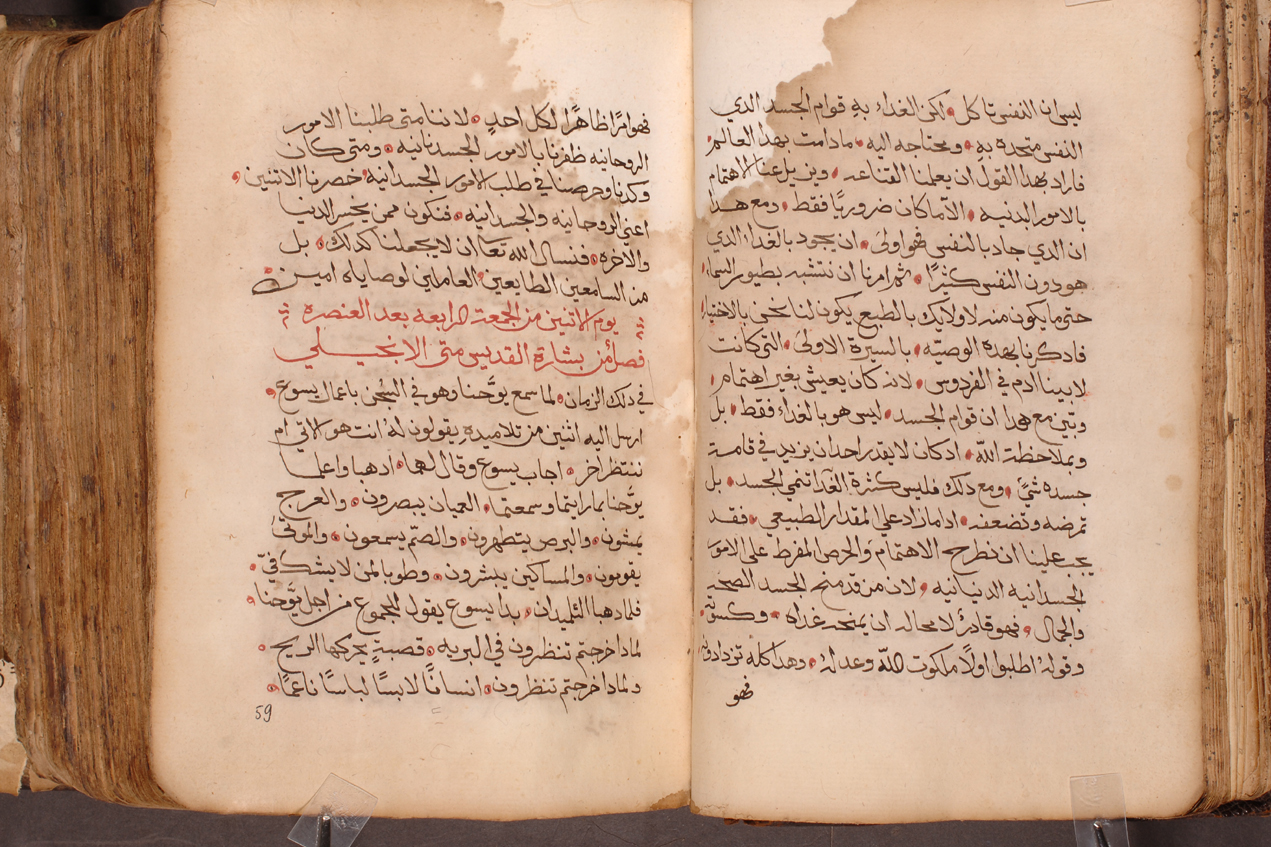 ليس ان النفس تاكل • لكن الغداء به قوام الجسد الدي
النفس متحده به • ومحتاجه اليه • مادامت بهدا العالم •
فاراد بهدا القول ان يعلمنا القناعه • ويزيل عنا الاهتمام
بالامور البدنيه • الا ما كان ضروريًا فقط • ومع هدا
ان الدي جاد بالنفس فهو اولى • ان يجود بالغداء الدي
هو دون النفس كثيرًا • ثم امرنا ان نتشبه بطيور السماء •
حتى ما يكون منه لاولايك بالطبع يكون لنا نحن بالاختيار •
فادكرنا بهده الوصيّه • بالسيرة الاولى • التي كانت
لابينا ادم في الفردوس • لانه كان يعيش بغير اهتمام •
وتبين مع هدا ان قوام الجسد • ليس هو بالغداء فقط • بل
وبملاحظة الله • ادكان لا يقدر احد ان يزيد في قامة
جسده شيًّ • ومع دلك فليس كثرة الغدآ تنمي الجسد • بل
تمرضه وتضعفه • اداما زاد على المقدار الطبيعي • فقد
يجب علينا ان نطرح الاهتمام والحرص المفرط على الامور
الجسدانيه الدنيانيه • لان من قد منح الجسد الصحه
والجمال • فهو قادرٌ لا محاله ان يمنحه غداه • وكسوته •
وقوله اطلبوا اولاً ملكوت الله وعدله • وهدا كله تزدادونه •
فهو
فهو امرًا ظاهرًا لكل احدٍ • لاننا متى طلبنا الامور
الروحانيه ظفرنا بالامور الجسدانيه • ومتى كان
وكدنا وحرصنا في طلب الامور الجسدانيه • خسرنا الاتنين •
اعني الروحانيه والجسدانيه • فنكون ممن يخسر الدنيا
والاخره • فنسال الله تعا ان لا يجعلنا كدلك • بل
من السامعين الطايعين • العاملين لوصاياه امين •
يوم الاتنين من الجمعة الرابعه بعد العنصره
فصلٌ من بشارة القديس متى الانجيلي
في دلك الزمان • لما سمع يوّحنا وهو في السجن باعمال يسوع •
ارسل اليه اثنين من تلاميده يقولون لهُ انت هو الاتي ام
ننتظر اخر • اجاب يسوع وقال لهما • ادهبا واعلما
يوّحنا بما رايتما وسمعتما • العميان يبصرون • والعرج
يمشون • والبرص يتطهرون • والصّم يسمعون • والموتى
يقومون • والمساكين يبشرون • وطوبا لمن لا يشك فيّ •
فلما دهبا التلميدان • بدا يسوع يقول للجموع من اجل يوّحنا •
لمادا خرجتم تنظرون في البريه • قصبةٍ يحركها الريح •
ولمادا خرجتم تنظرون • انسانًا لابسًا لباسًا ناعمًا •
59